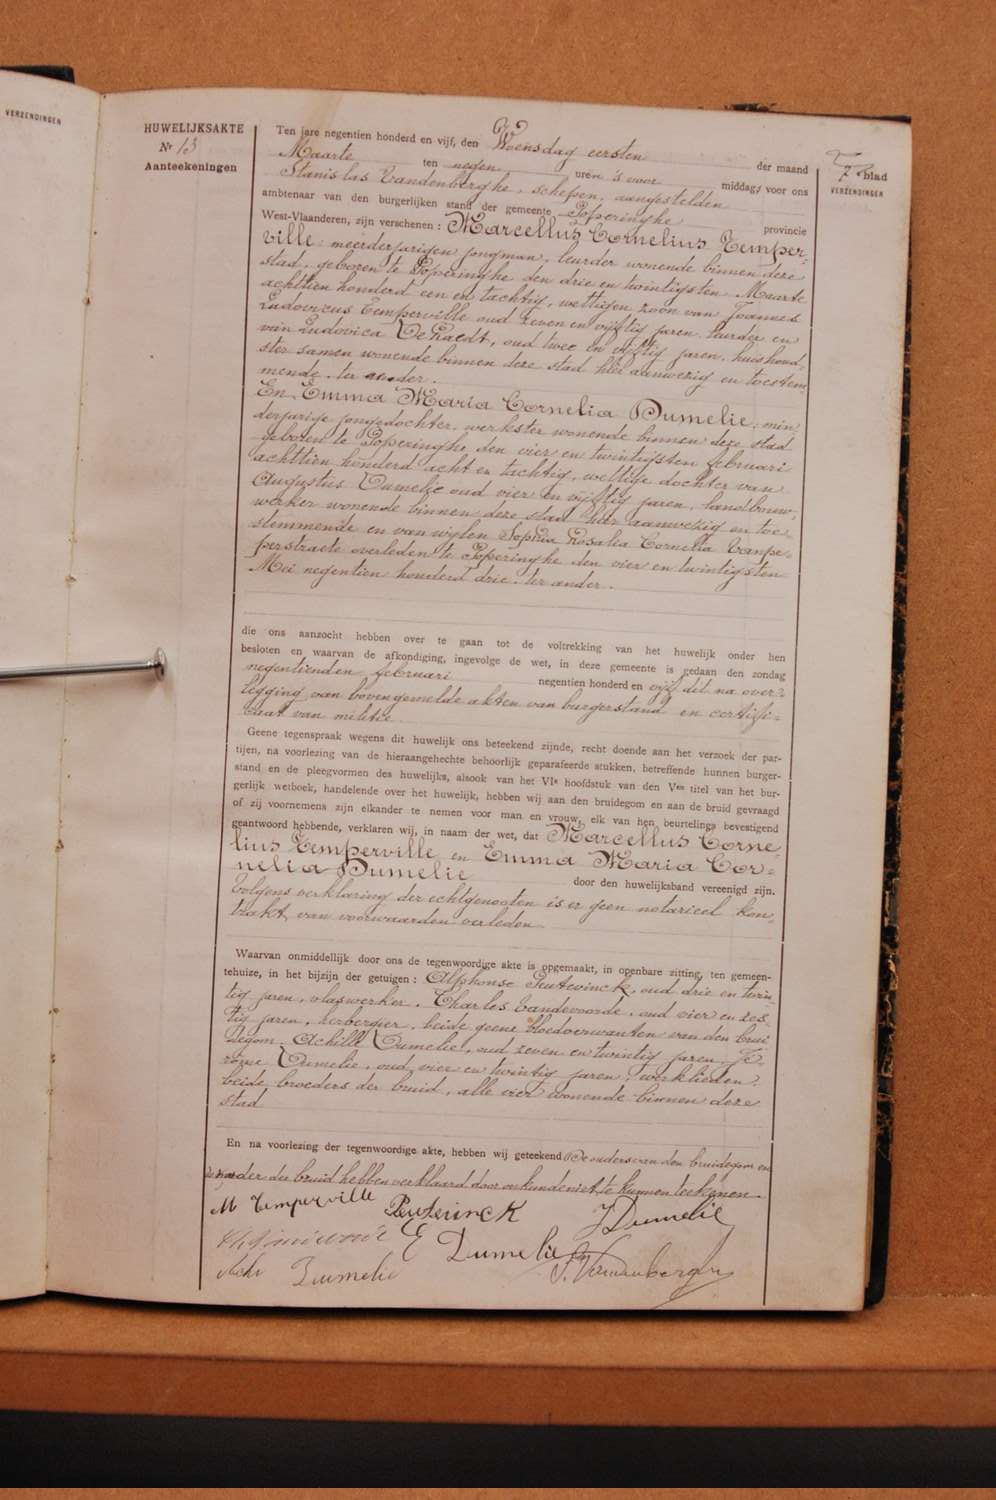 VERZENDINGEN
HUWELIJKSAKTE
Nr 13
Aanteekeningen
7e blad
VERZENDINGEN
Ten jare negentien honderd en vijf, den Woensdag eersten
der maand
Maarte ten negen ure n 's voor middags voor ons
Stanislas Vandenberghe, schepen, aangestelden
ambtenaar van den burgerlijken stand der gemeente Poperinghe provincie
West-Vlaanderen, zijn verschenen : Marcellus Cornelius Temper-
ville, meerderjarigen jongman, leurder wonende binnen deze
stad, geboren te Poperinghe den drie en twintigsten Maarte
achttien honderd een en tachtig, wettigen zoon van Joannes
Ludovicus Temperville oud zeven en vijftig jaren, leurder en
van Ludovica DeHaedt, oud twee en vijftig jaren, huishoud-
ster samen wonende binnen deze stad hier aanwezig en toestem-
mende, ter ander.
En Emma Maria Cornelia Dumelie, min
derjarige jongedochter, werkster wonende binnen deze stad
geboren te Poperinghe den vier en twintigsten februari
achttien honderd acht en tachtig, wettige dochter van
Augustus Dumelie oud vier en vijftig jaren, landbouw-
werker wonende binnen deze stad hier aanwezig en toe-
stemmende en van wijlen Sophia Rosalia Cornelia Vanpe-
perstraete overleden te Poperinghe den vier en twintigsten
Mei negentien honderd drie, ter ander.
die ons aanzocht hebben over te gaan tot de voltrekking van het huwelijk onder hen
besloten en waarvan de afkondiging, ingevolge de wet, in deze gemeente is gedaan den zondag
negentienden februari negentien honderd en vijf dit na over-
legging van bovengemelde akten van burgerstand en certifi-
caat van militie.
Geene tegenspraak wegens dit huwelijk ons beteekend zijnde, recht doende aan het verzoek der par-
tijen, na voorlezing van de hieraangehechte behoorlijk geparafeerde stukken, betreffende hunnen burger-
stand en de pleegvormen des huwelijks, alsook van het VIe hoofdstuk van den Ven titel van het bur-
gerlijk wetboek, handelende over het huwelijk, hebben wij aan den bruidegom en aan de bruid gevraagd
of zij voornemens zijn elkander te nemen voor man en vrouw, elk van hen beurtelings bevestigend
geantwoord hebbende, verklaren wij, in naam der wet, dat Marcellus Corne-
lius Temperville en Emma Maria Cor-
nelia Dumelie door den huwelijksband vereenigd zijn.
Volgens verklaring der echtgenooten is er geen notarieel kon-
trakt van voorwaarden verleden.
Waarvan onmiddelijk door ons de tegenwoordige akte is opgemaakt, in openbare zitting, ten gemeen-
tehuize, in het bijzijn der getuigen : Alphonse Peutevinck, oud drie en twin-
tig jaren, vlaswerker, Charles Vandevoorde, oud vier en zes-
tig jaren, herbergier, beide geene bloedverwanten van den brui
degom, Achille Dumelie, oud zeven en twintig jaren, Je-
rôme Dumelie, oud vier en twintig jaren, werklieden,
beide broeders der bruid, alle vier wonende binnen deze
stad
En na voorlezing der tegenwoordige akte, hebben wij geteekend De ouders van den bruidegom en
der bruid hebben verklaard door onkunde niet te kunnen teekenen.
M Temperville Peutevinck J Dumelie
E Dumelie S. Vandenberghe
Achi Dumelie